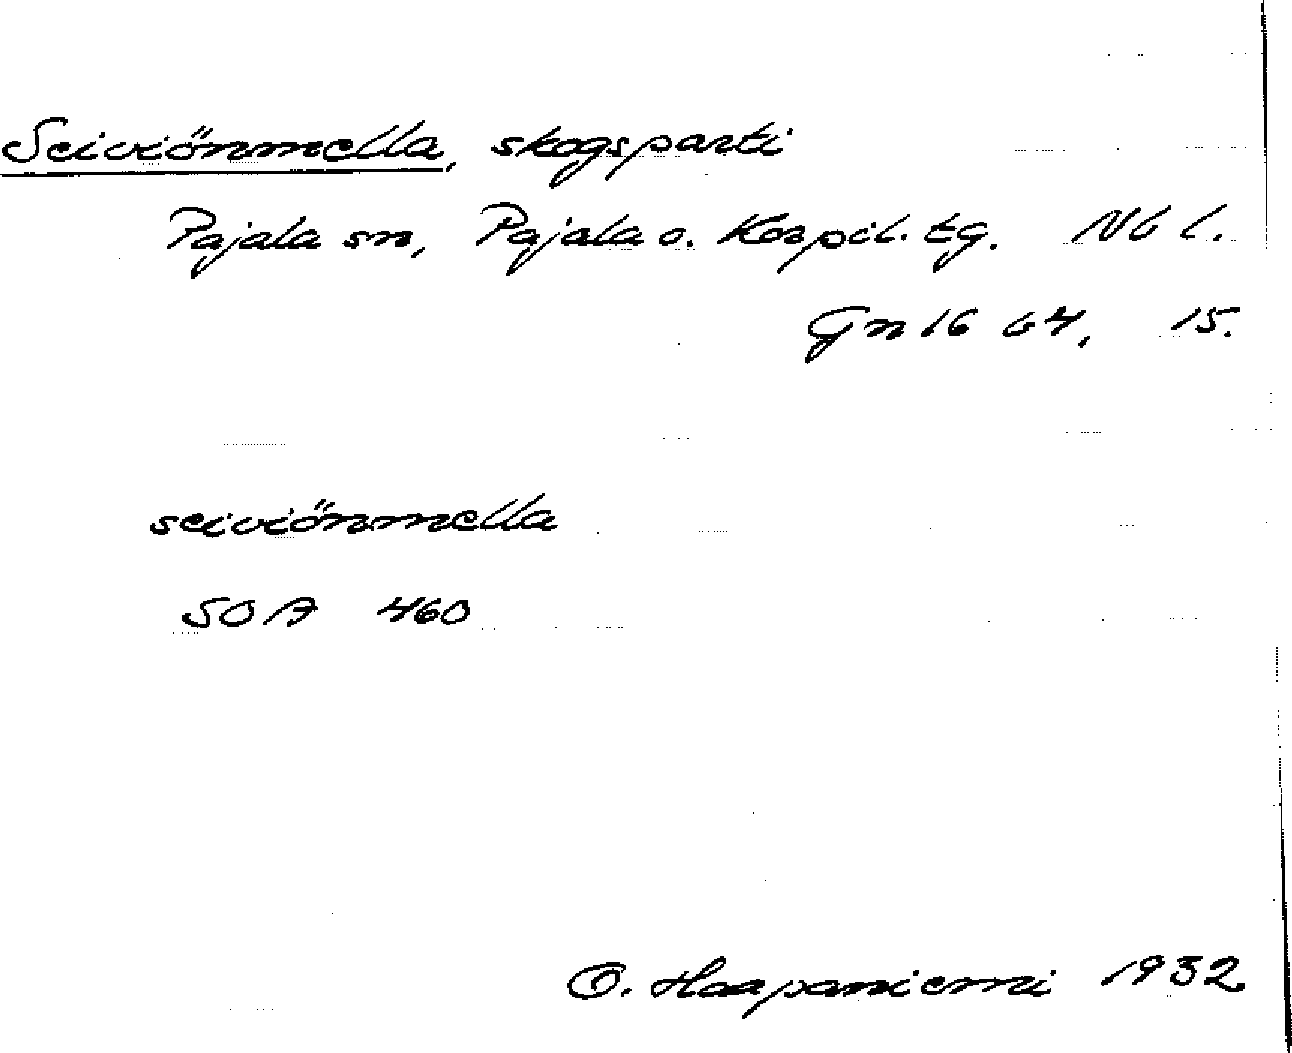 Seiviönmella, skogsparti
Pajala sn, Pajala o. Korpil. tg. Nb l.
Gn 16 b4, 15.
seiviönmella
SOA 460
O. Haapaniemi 1932